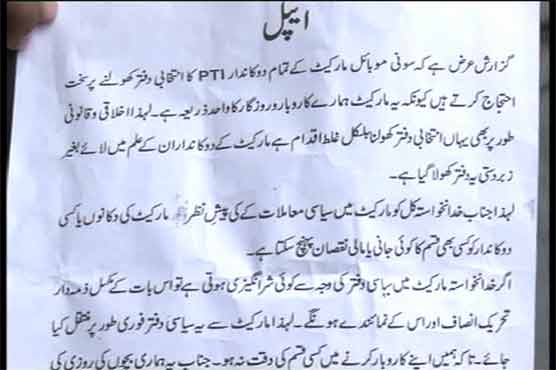 اپیل
گزارش عرض ہے کہ سونی موبائل مارکیٹ کے تمام دوکاندار PTI کا انتخابی دفتر کھولنے پر سخت
احتجاج کرتے ہیں کیونکہ یہ مارکیٹ ہمارے کاروبار و روزگار کا واحد ذریعہ ہے۔ لہذا اخلاقی و قانونی
طور پر بھی یہاں انتخابی دفتر کھولنا بلکل غلط اقدام ہے مارکیٹ کے دوکانداران کے علم میں لائے بغیر
زبردستی یہ دفتر کھولا گیا ہے۔
لہذا جناب خدانخواستہ کل کو مارکیٹ میں سیاسی معاملات کے کی پیش نظر مارکیٹ کی دکانوں یا کسی
دوکاندار کو کسی بھی قسم کا کوئی جانی یا مالی نقصان پہنچ سکتا ہے۔
اگر خدانخواستہ مارکیٹ میں سیاسی دفتر کی وجہ سے کوئی شرانگیزی ہوتی ہے تو اس بات کے مکمل ذمہ دار
تحریک انصاف اور اس کے نمائندے ہونگے۔ لہذا مارکیٹ سے یہ سیاسی دفتر فوری طور پر منتقل کیا
جائے۔ تاکہ ہمیں اپنے کاروبار کرنے میں کسی قسم کی دقت نہ ہو۔ جناب یہ ہماری بچوں کی روزی کی